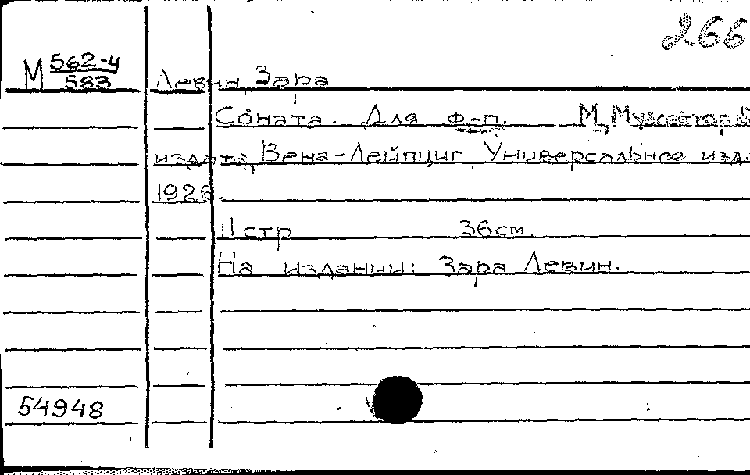 266
М 562-4
583
Левина, Зара
Соната. Для ф-п. М, Музсектор
издат., Вена-Лейпциг, Универсальное изд
1926
11 стр 36см.
На издании: Зара Левин.
54948